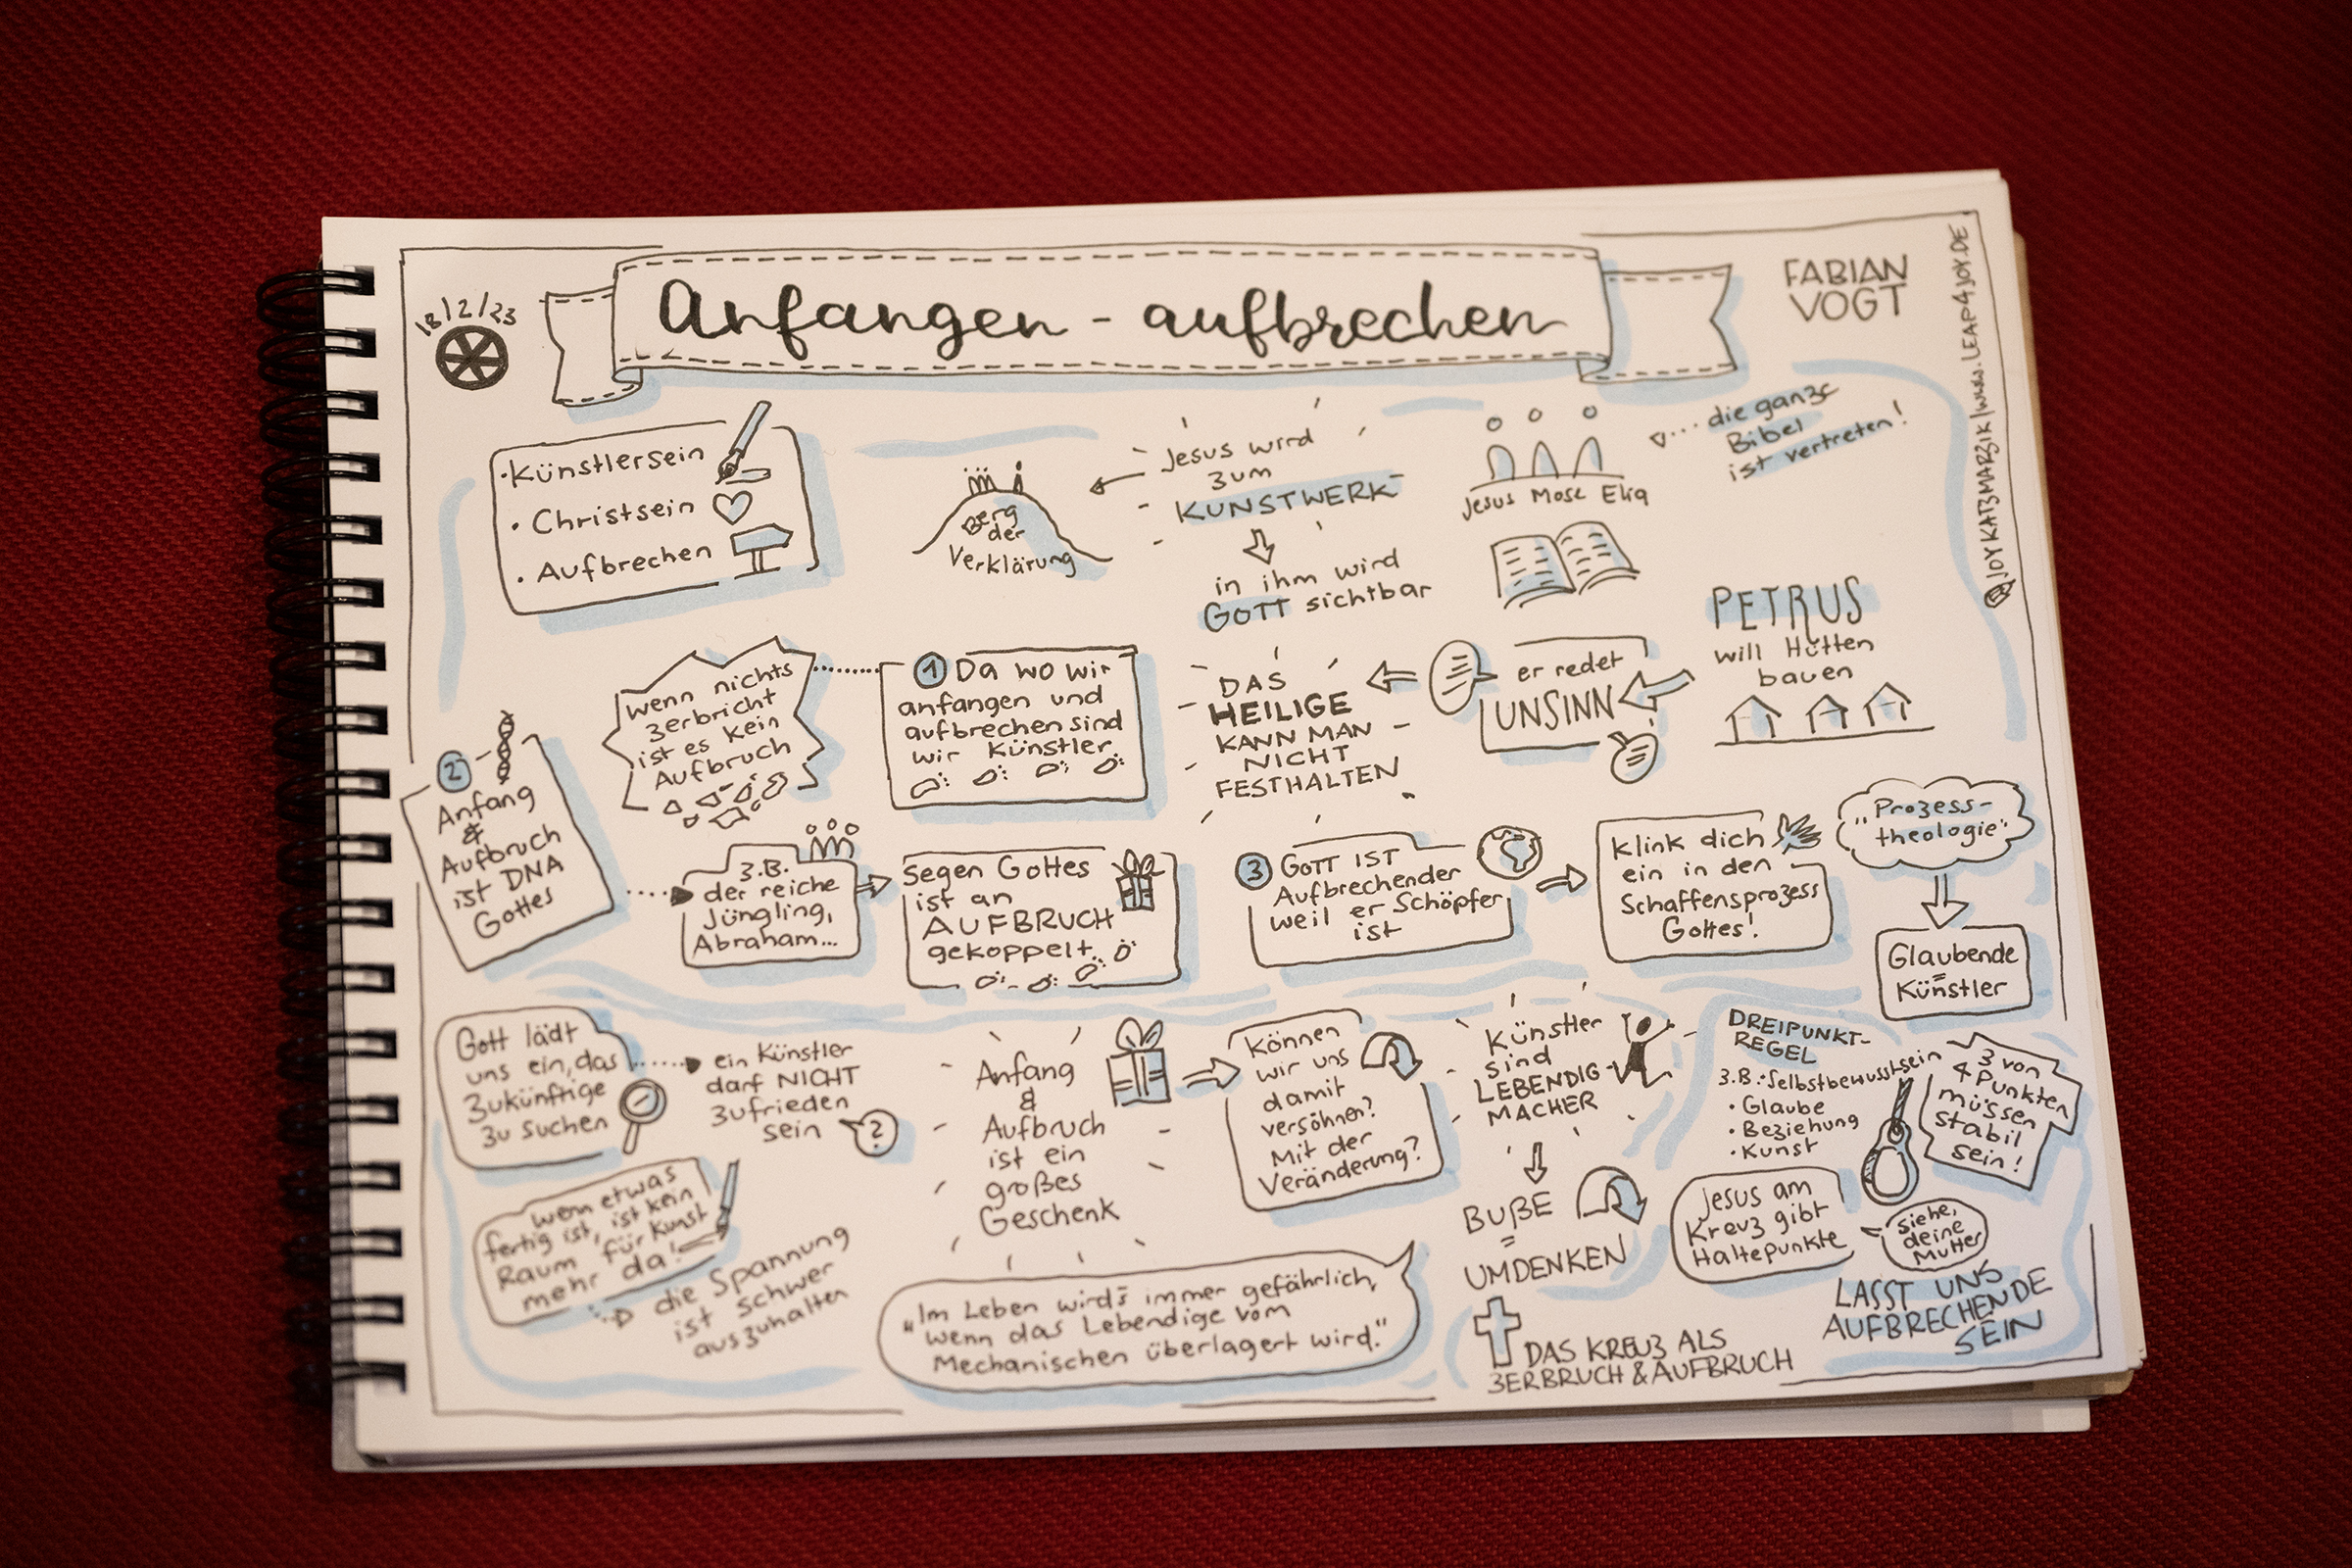 18/2/23
Anfangen - aufbrechen
FABIAN
VOGT
@JOYKATZMARZIK|WWW.LEAP4JOY.DE
• Künstlersein
• Christsein
• Aufbrechen
Berg
der
Verklärung
Jesus wird
zum
KUNSTWERK
in ihm wird
GOTT sichtbar
Jesus Mose Elia
die ganze
Bibel
ist vertreten!
PETRUS
will Hütten
bauen
er redet
UNSINN
DAS
HEILIGE
KANN MAN
NICHT
FESTHALTEN
1 Da wo wir
anfangen und
aufbrechen sind
wir Künstler
wenn nichts
zerbricht
ist es kein
Aufbruch
2
Anfang
&
Aufbruch
ist DNA
Gottes
z.B.
der reiche
Jüngling,
Abraham...
Segen Gottes
ist an
AUFBRUCH
gekoppelt
3 GOTT IST
Aufbrechender
weil er Schöpfer
ist
klink dich
ein in den
Schaffensprozess
Gottes!
"Prozess-
theologie"
Glaubende
=
Künstler
Gott lädt
uns ein, das
zukünftige
zu suchen
ein Künstler
darf NICHT
zufrieden
sein
?
wenn etwas
fertig ist, ist kein
Raum für Kunst
mehr da!
die Spannung
ist schwer
auszuhalten
Anfang
&
Aufbruch
ist ein
großes
Geschenk
Können
wir uns
damit
versöhnen?
Mit der
Veränderung?
"Im Leben wird's immer gefährlich,
wenn das Lebendige vom
Mechanischen überlagert wird."
Künstler
sind
LEBENDIG-
MACHER
BUßE
=
UMDENKEN
DAS KREUZ ALS
ZERBRUCH & AUFBRUCH
DREIPUNKT-
REGEL
z.B.: Selbstbewusstsein
• Glaube
• Beziehung
• Kunst
3 von
4 Punkten
müssen
stabil
sein!
Jesus am
Kreuz gibt
Haltepunkte
siehe,
deine
Mutter
LASST UNS
AUFBRECHENDE
SEIN